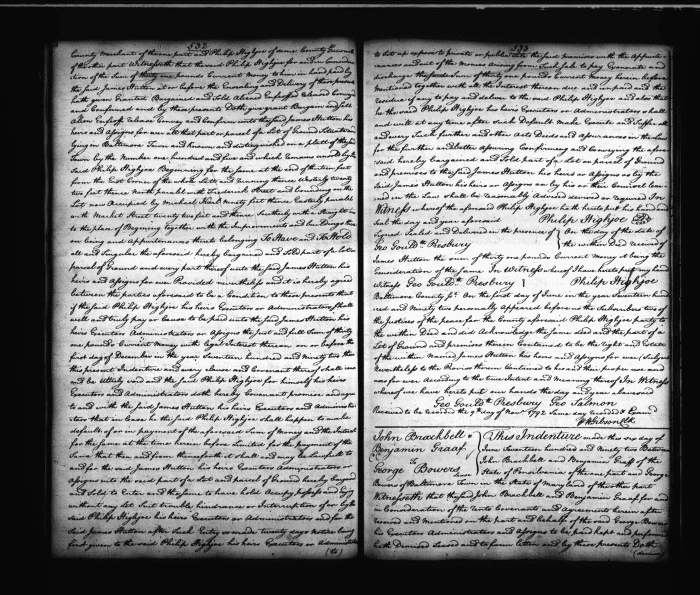 532
County Merchant of the one part and Philip Highjoe of same County
of the other part Witnesseth that the said Philip Highjoe for and in Consider
ation of the Sum of thirty one pounds Current Money to him in hand paid by
the said James Hutton at or before the Ensealing and Delivery of these presents
hath given Granted Bargained and Sold Aliened Enfeoffed released Conveyed
and Confirmed and by these presents Doth give grant Bargain and Sell
Alien Enfeoff release Convey and Confirm unto the said James Hutton his
heirs and Assigns for ever all that part or parcel of a Lot of Ground Situate and
lying in Baltimore Town and known and distinguished on a platt of the said
Town by the Number one hundred and five and which remains
Said Philip Highjoe Beginning for the same at the end of thirteen feet
from the East Corner of the whole Lott and running thence Westerly twenty
two feet thence North paralel with Frederick Street and bounding on the
Lot now Occupied by Michael ninety feet thence Easterly paralel
with Market Street twenty two feet and thence Southerly with a straight line
to the place of Begining together with the Improvements and buildings there
on being and appurtenances there belonging To Have and To Hold
all and Singular the aforesaid hereby bargained and Sold part of a lot or
parcel of Ground and every part thereof unto the said James Hutton his
heirs and Assigns for ever Provided nevertheless and it is hereby agreed
between the parties aforesaid to be a Condition to these presents that
if the said Philip Highjoe his heirs Executors or Administrators shall
well and truly pay or Cause to be paid unto the said James Hutton his
heirs Executors Administrators or Assigns the just and full Sum of thirty
one pounds Current Money with legal Interest thereon on or before the
first day of December in the year Seventeen hundred and Ninety two then
this present Indenture and every clause and Covenant thereof shall cease
and be utterly void and the said Philip Highjoe for himself his heirs
and Executors and Administrators doth hereby Covenant promise and agree
to and with the said James Hutton his heirs Executors and Administra
tors that in Case he the said Philip Highjoe shall happen to make
default of or in payment of the aforesaid Sum of Money and the Interest
for the same at the time herein before Limited for the payment of the
Same that then and from thenceforth it shall and may be lawful to
and for the said James Hutton his heirs Executors Administrators or
Assigns into the said part of a Lot and parcel of Ground hereby bargained
and Sold to Enter and the same to have hold Occupy possess and Enjoy
without any Let Suit trouble hindrance or Interruption of or by the
said Philip Highjoe his heirs Executors or Administrators and for the
said James Hutton after such Entry so made twenty days notice being
first given to the said Philip Highjoe his heirs Executors or Administrators
(to)
533
to set up expose to private or public Sale the said premises with the Appurte
nances and out of the monies arising from such Sale to pay Generate and
discharge the said Sum of thirty one pounds Current Money herein before
Mentioned together with the Interest thereon due and unpaid and the
residue if any to pay and deliver to the said Philip Highjoe and also that
he the said Philip Highjoe his heirs Executors or Administrators shall
and will at any time after such Default make Execute and Suffer all
and every Such further and other Acts Deeds and assurances in the Law
for the further and better assuring Confirming and Conveying the afore
said hereby bargained and Sold part of a Lot or parcel of Ground
and premises to the said James Hutton his heirs or Assigns as by the
said James Hutton his heirs or Assigns or by his or their Council learn
ed in the Law shall be reasonably advised devised or required In
Witness whereof the aforesaid Philip Highjoe hath hereto set his hand and
Seal the day and year aforesaid Philip Highjoe Seal
Signed Sealed and Delivered in the presence of On the day of the date of
Geo Gould Presbury the within Deed received of
James Hutton the sum of thirty one pounds Current Money it being the
Consideration of the same In Witness whereof I have hereto put my hand
Witness Geo Gould Presbury Philip Highjoe
Baltimore County sc. On the first day of June in the year Seventeen hund
red and Ninety two personally Appeared before us the Subscribers two of
the Justices of the peace for the County aforesaid Philip Highjoe Party to
the within Deed and did Acknowledge the same Deed and the part of a
Lot of Ground and premises therein Contained to be the right and Estate
of the within Named James Hutton his heirs and Assigns for ever (Subject
Nevertheless to the Proviso therein Contained to be and their proper use and
uses for ever according to the true intent and Meaning thereof In Witness
whereof we have hereto put our hands the day and year abovesaid
Geo Gould Presbury Geo Salmon
Received to be recorded the 9th day of Novr 1792 Same day recorded & Examd
Wm Gibson Clk
John Brackbell &
Benjamin Graaf
To
George Bowers
This Indenture made this day of
June Seventeen hundred and Ninety two Between
John Brackbell and Benjamin Graff of the
State of Pensilvania of the one part and George
Bowers of Baltimore Town in the State of Maryland of the other part
Witnesseth that the said John Brackbell and Benjamin Graaf for and
in Consideration of the Rents Covenants and Agreements herein after
reserved and Mentioned on the part and behalf of the said George Bowers
his Executors Administrators and Assigns to be paid kept and performed
hath Demised Leased and to farm letten and by these presents Doth
(demise)